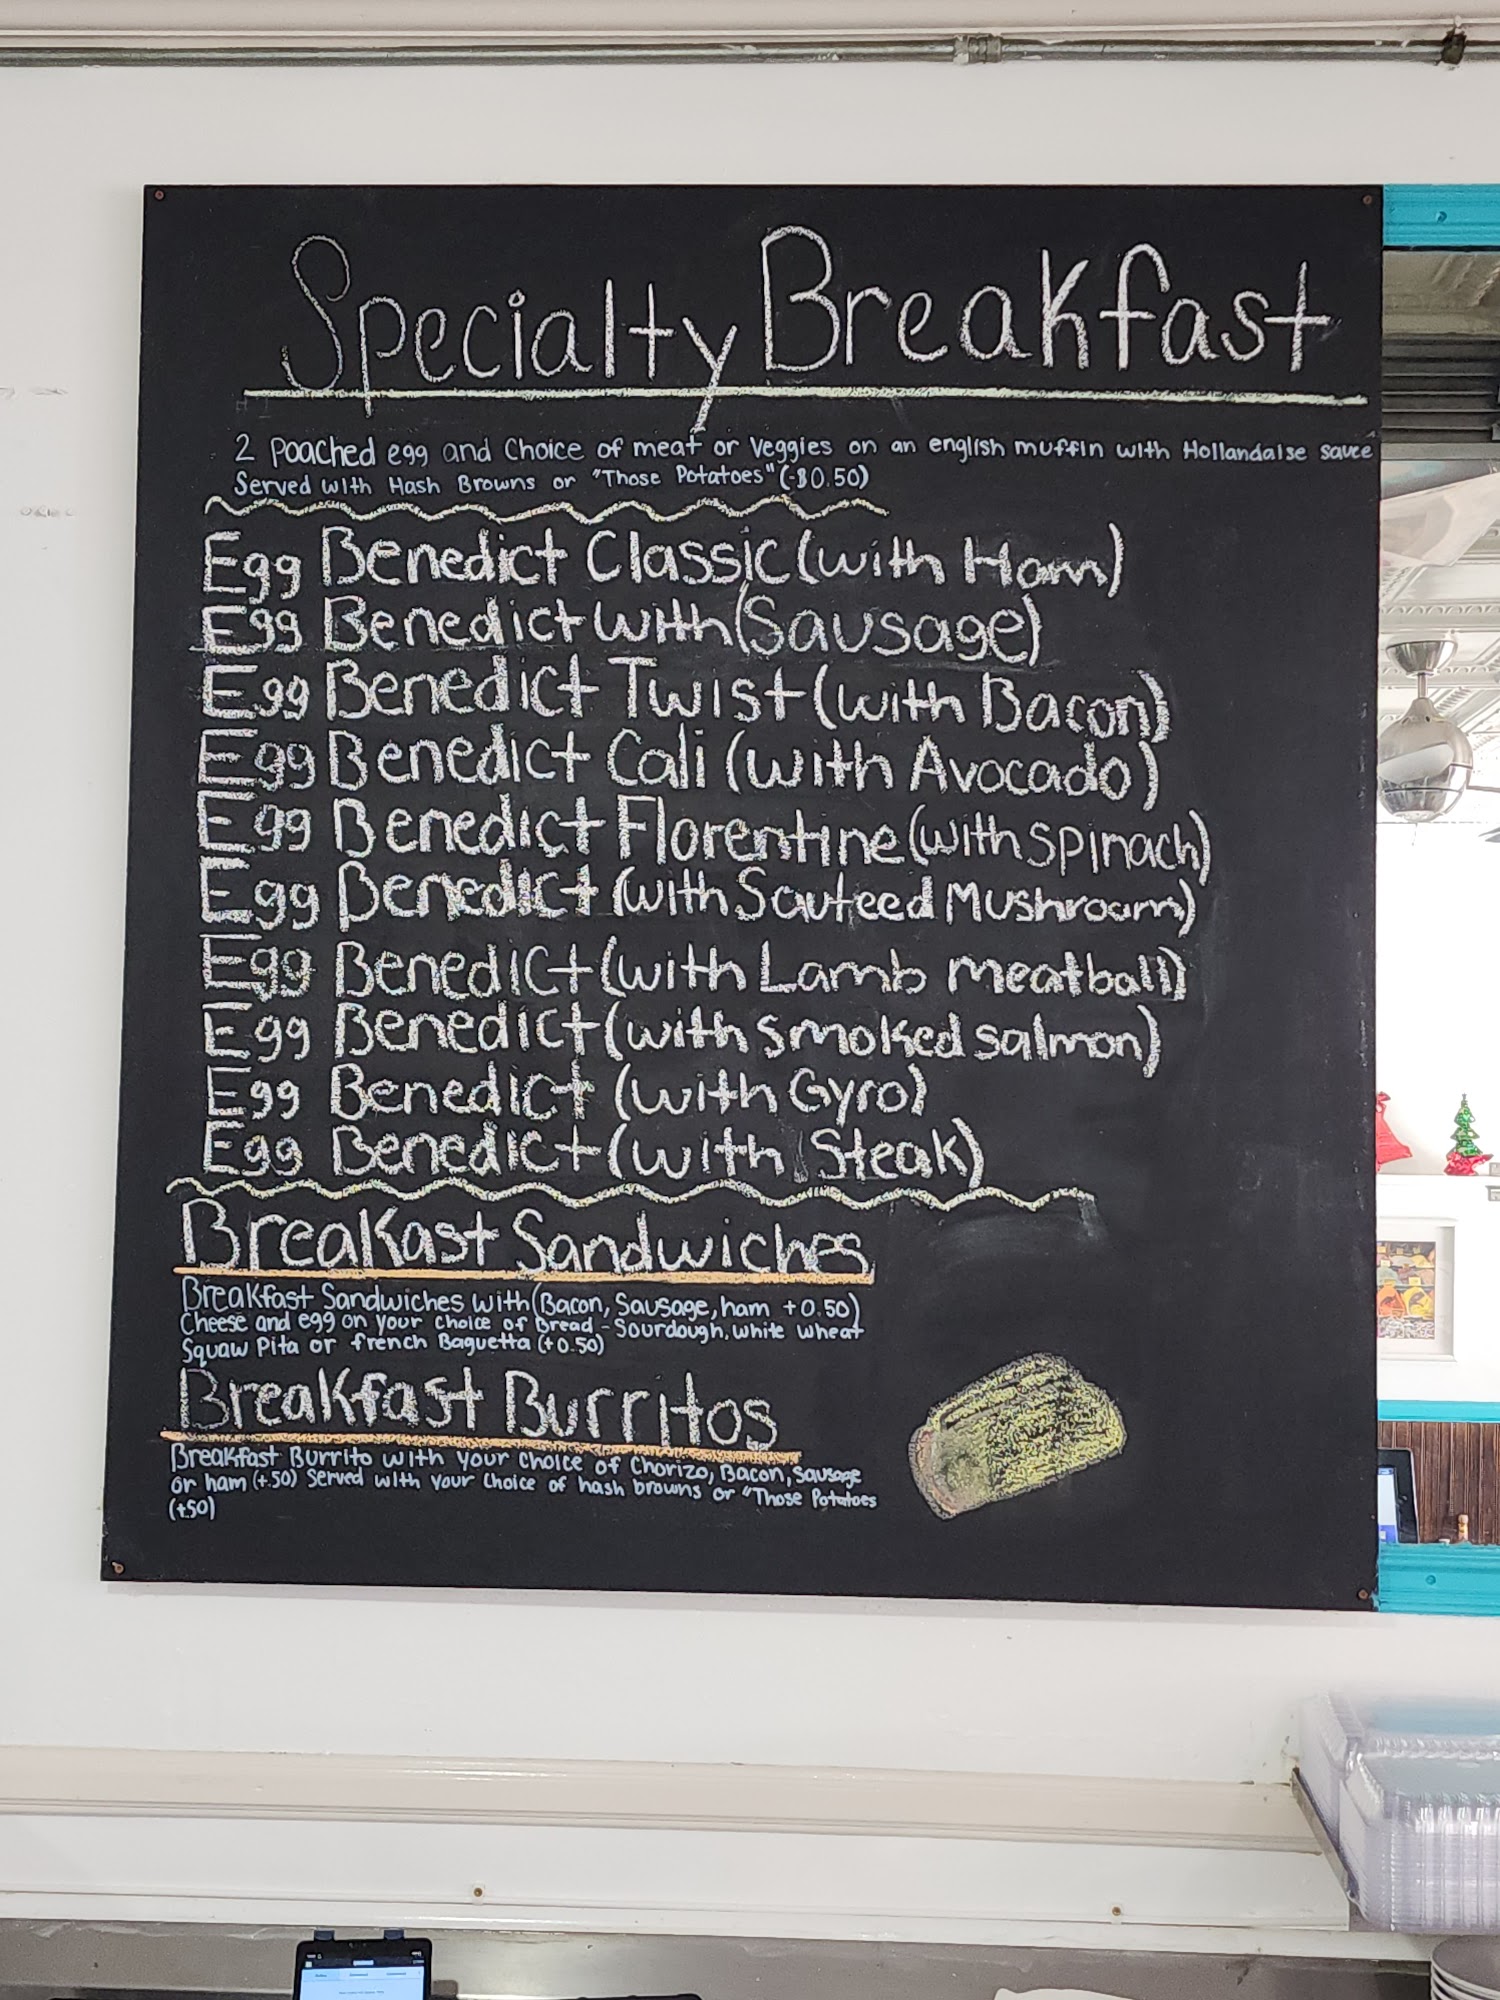 Specialty Breakfast
2 Poached egg and Choice of meat or Veggies on an english muffin with Hollandaise sauce
Served with Hash Browns or "Those Potatoes" (-$0.50)
Egg Benedict Classic (with Ham)
Egg Benedict with (Sausage)
Egg Benedict Twist (with Bacon)
Egg Benedict Cali (with Avocado)
Egg Benedict Florentine (with spinach)
Egg Benedict (with Sauteed Mushroom)
Egg Benedict (with Lamb meatball)
Egg Benedict (with smoked salmon)
Egg Benedict (with Gyro)
Egg Benedict (with Steak)
Breakast Sandwiches
Breakfast Sandwiches with (Bacon, Sausage, ham +0.50)
Cheese and egg on your choice of Bread - Sourdough, white wheat
Squaw Pita or french Baguetta (+0.50)
Breakfast Burritos
Breakfast Burrito with your choice of Chorizo, Bacon, sausage
or ham (+.50) Served with your choice of hash browns or "Those Potatoes
(+.50)